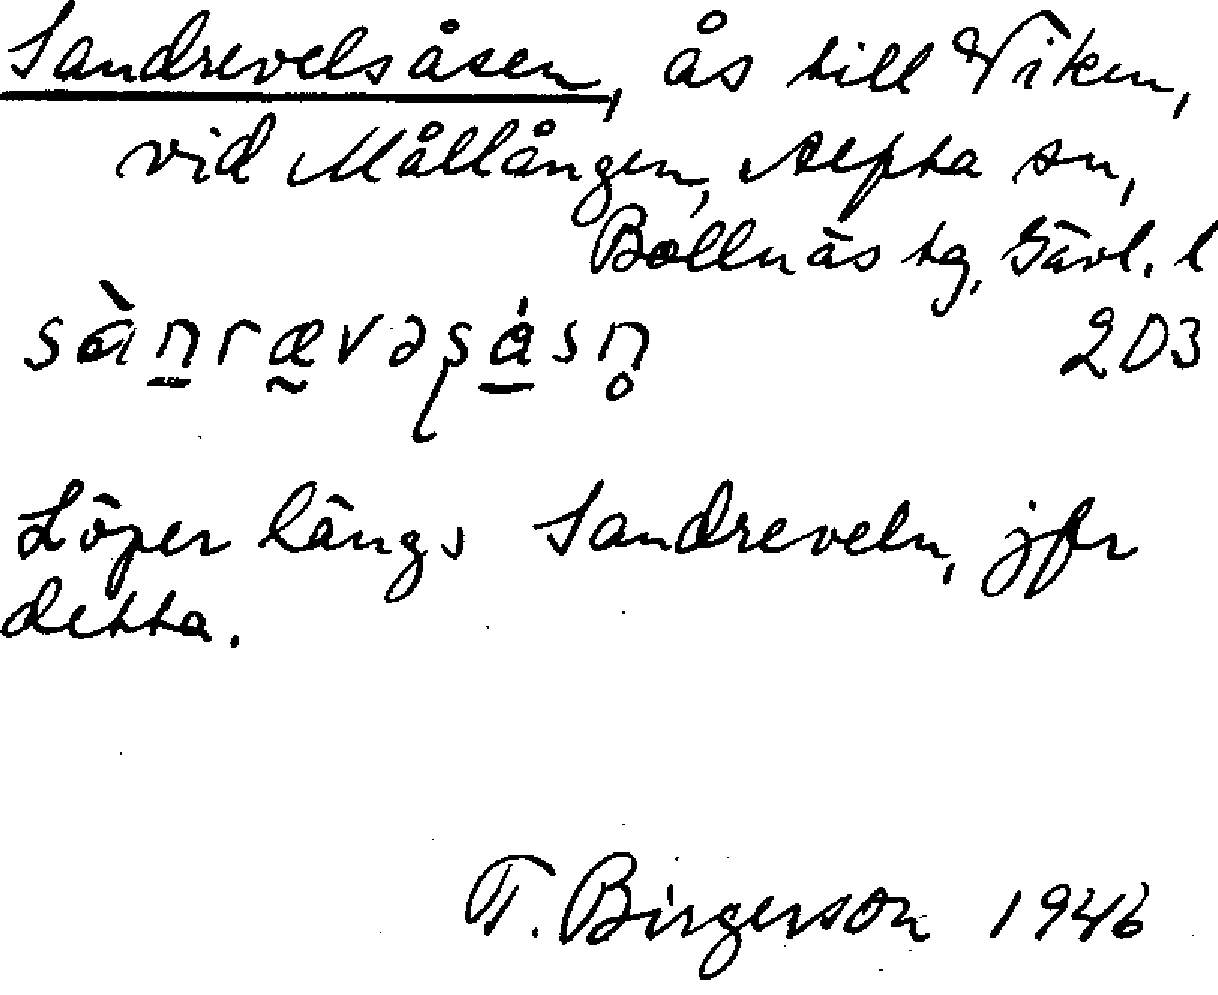 Sandrevelsåsen, ås till Viken,
vid Mållången, Alfta sn,
Bollnäs tg, Gävl. l
sànrævəsásn̥ 2D3
Löper längs Sandreveln, jfr
detta.
T. Birgerson 1946